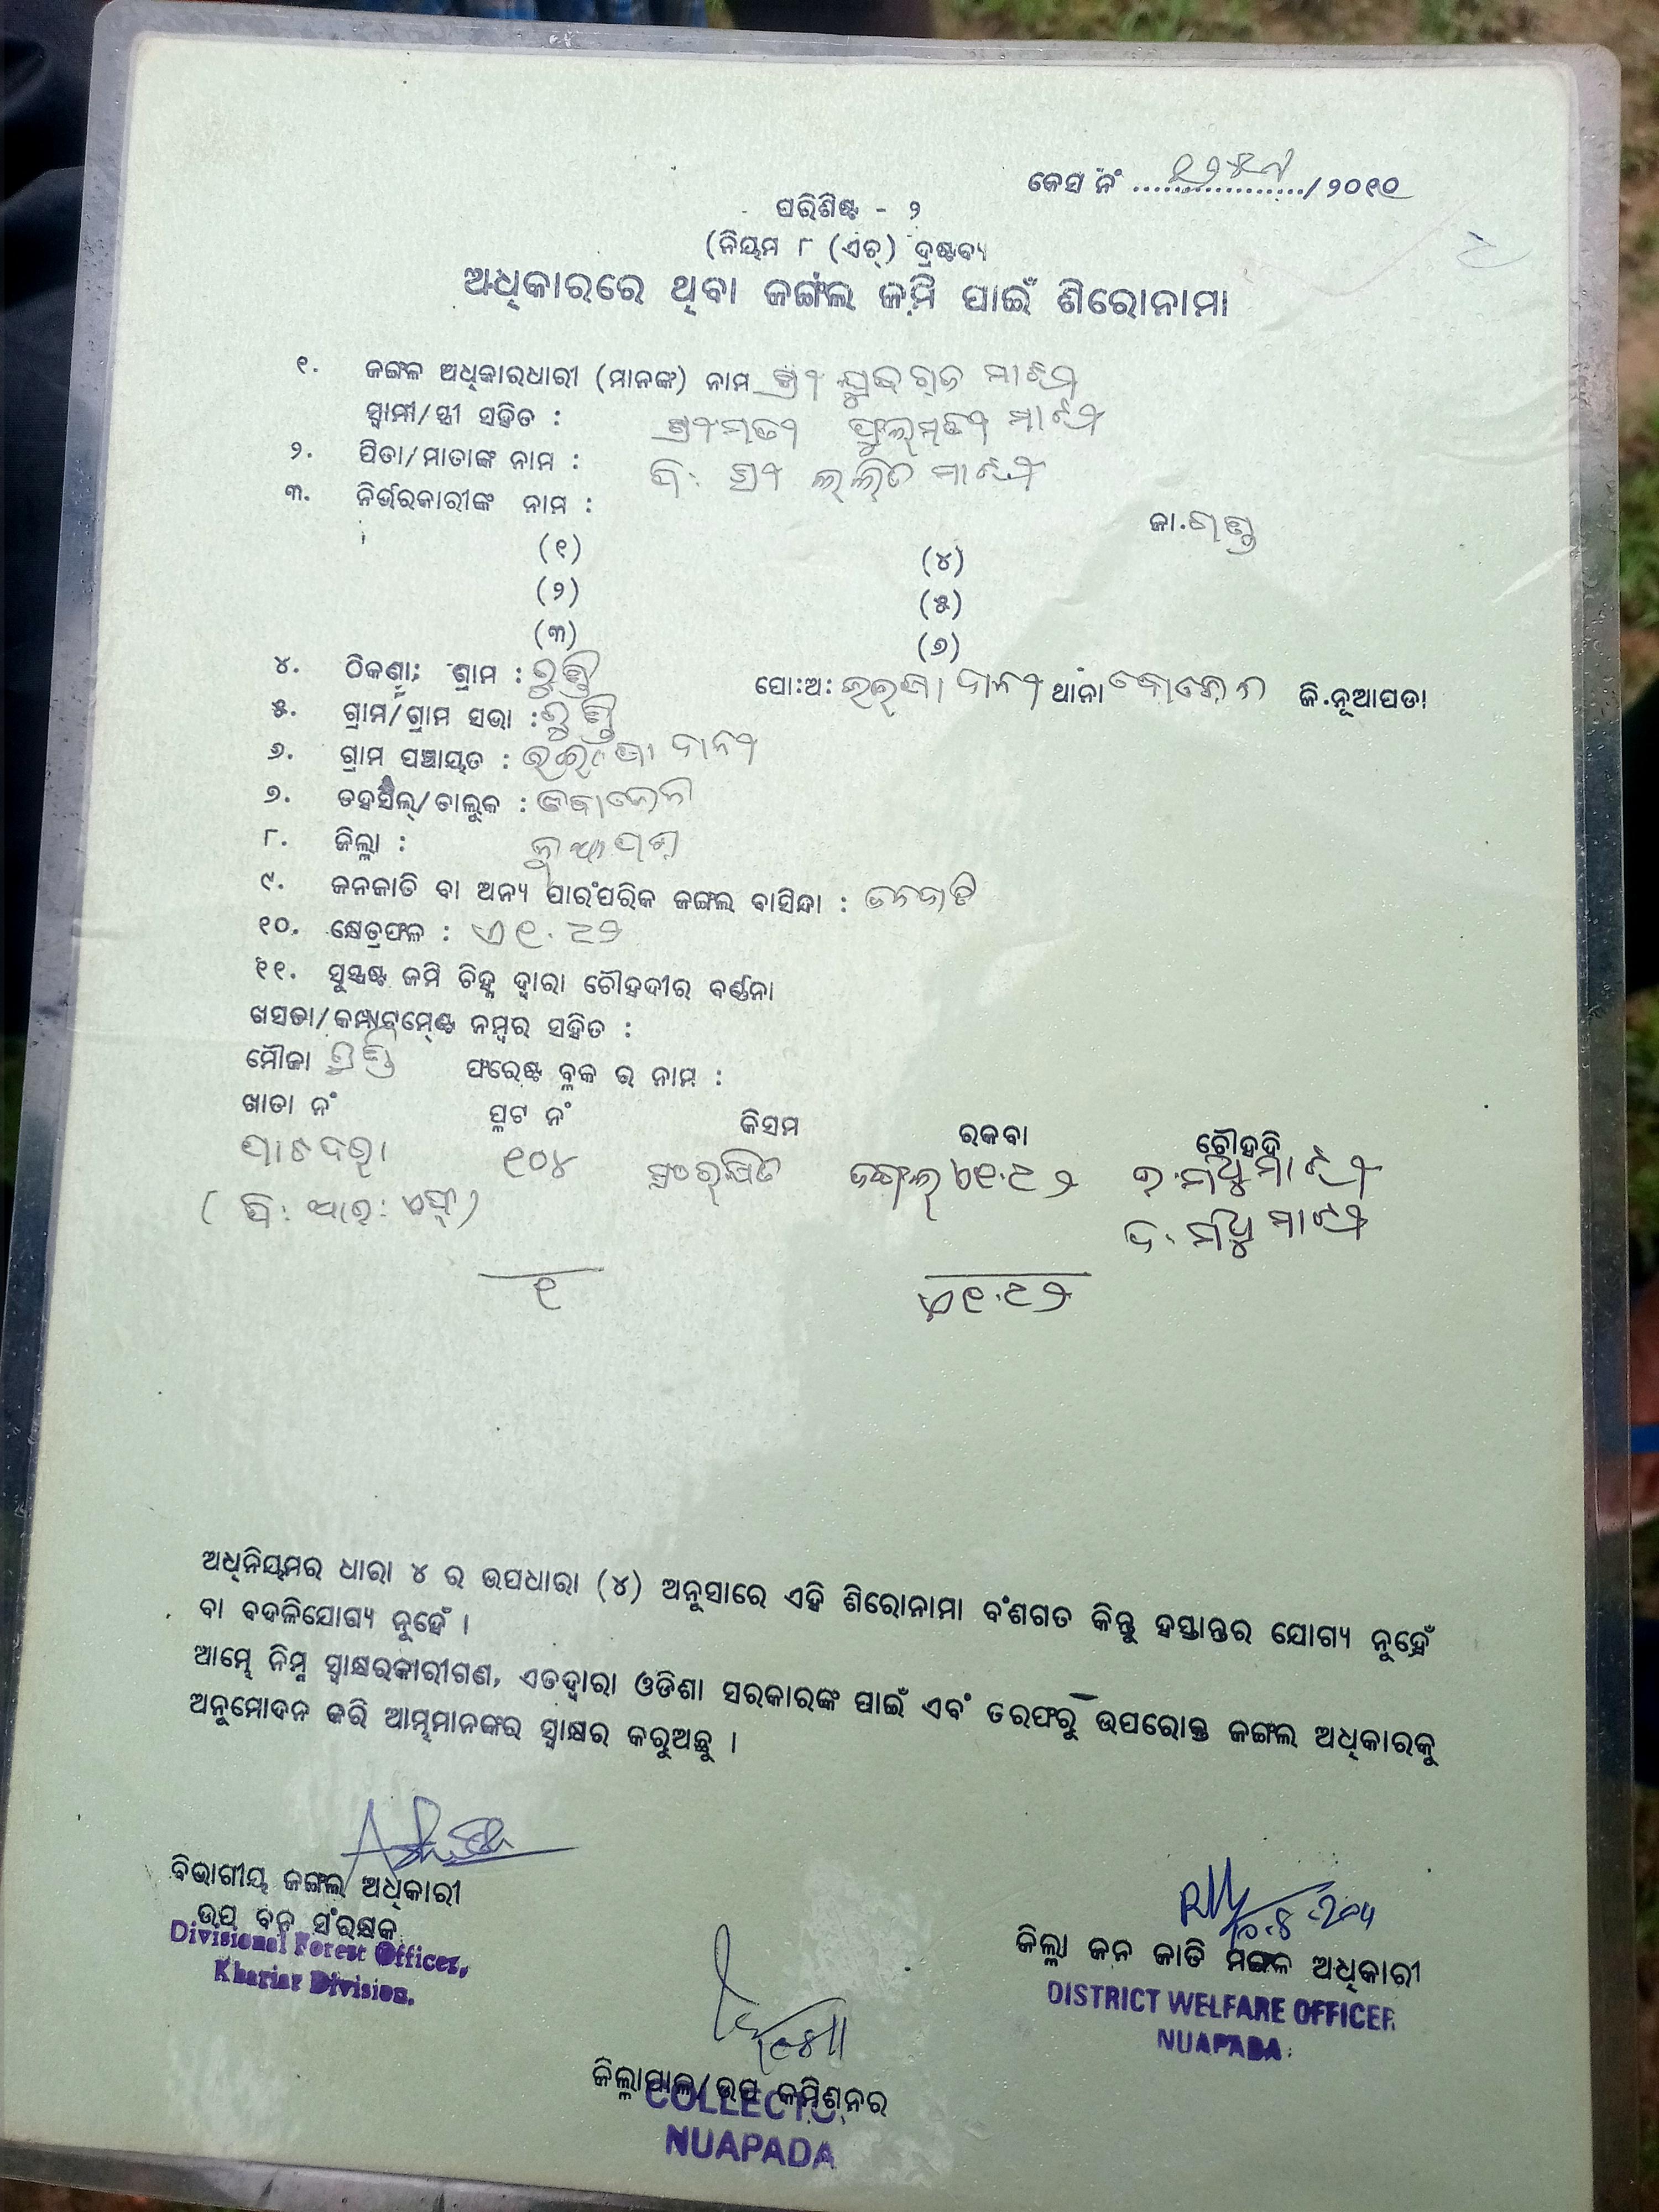 କେସ ନଂ ................./୨୦୧୦
ପରିଶିଷ୍ଟ - ୨
(ନିୟମ ୮ (ଏଚ୍) ଦ୍ରଷ୍ଟବ୍ୟ
ଅଧିକାରରେ ଥିବା ଜଙ୍ଗଲ ଜମି ପାଇଁ ଶିରୋନାମା
୧. ଜଙ୍ଗଲ ଅଧିକାରଧାରୀ (ମାନଙ୍କ) ନାମ ଶ୍ରୀ ମାଝୀ
ସ୍ୱାମୀ/ସ୍ତ୍ରୀ ସହିତ : ଶ୍ରୀମତୀ ଫୁଲ୍‌ମତୀ ମାଝୀ
୨. ପିତା/ମାତାଙ୍କ ନାମ : ପି: ଶ୍ରୀ ଲଲିତ ମାଝୀ
୩. ନିର୍ଭରକାରୀଙ୍କ ନାମ : ଜା.ଗଣ୍ଡ
(୧) (୪)
(୨) (୫)
(୩) (୬)
୪. ଠିକଣା; ଗ୍ରାମ : ପୋ:ଅ: ଥାନା ଜି.ନୂଆପଡା
୫. ଗ୍ରାମ/ଗ୍ରାମ ସଭା :
୬. ଗ୍ରାମ ପଞ୍ଚାୟତ :
୭. ତହସିଲ୍/ତାଲୁକ :
୮. ଜିଲ୍ଲା : ନୁଆପଡା
୯. ଜନଜାତି ବା ଅନ୍ୟ ପାରଂପରିକ ଜଙ୍ଗଲ ବାସିନ୍ଦା : ଜନଜାତି
୧୦. କ୍ଷେତ୍ରଫଳ : ଏ ୧.୯୨
୧୧. ସୁସ୍ପଷ୍ଟ ଜମି ଚିହ୍ନ ଦ୍ୱାରା ଚୌହଦୀର ବର୍ଣ୍ଣନା
ଖସଡା/କମ୍ପାଟମେଣ୍ଟ ନମ୍ବର ସହିତ :
ମୌଜା ଫରେଷ୍ଟ ବ୍ଲକ ର ନାମ :
ଖାତା ନଂ ପ୍ଲଟ ନଂ କିସମ ରକବା ଚୌହଦି
ପାଟଦରା ୧୦୪ ସଂରକ୍ଷିତ ଜଙ୍ଗଲ୍ ଏ୧.୯୨ ଉ.ମଧୁ ମାଝୀ
(ପି: ଆର: ଏଫ୍) ଦ. ମଧୁ ମାଝୀ
୧ ଏ୧.୯୨
ଅଧିନିୟମର ଧାରା ୪ ର ଉପଧାରା (୪) ଅନୁସାରେ ଏହି ଶିରୋନାମା ବଂଶଗତ କିନ୍ତୁ ହସ୍ତାନ୍ତର ଯୋଗ୍ୟ ନୁହେଁ
ବା ବଦଳିଯୋଗ୍ୟ ନୁହେଁ ।
ଆମ୍ଭେ ନିମ୍ନ ସ୍ୱାକ୍ଷରକାରୀଗଣ, ଏତଦ୍ୱାରା ଓଡିଶା ସରକାରଙ୍କ ପାଇଁ ଏବଂ ତରଫରୁ ଉପରୋକ୍ତ ଜଙ୍ଗଲ ଅଧିକାରକୁ
ଅନୁମୋଦନ କରି ଆମ୍ଭମାନଙ୍କର ସ୍ୱାକ୍ଷର କରୁଅଛୁ ।
ବିଭାଗୀୟ ଜଙ୍ଗଲ ଅଧିକାରୀ
ଉପ ବନ ସଂରକ୍ଷକ
Divisional Forest Officer,
Khariar Division.
ଜିଲ୍ଲା ଜନ ଜାତି ମଙ୍ଗଳ ଅଧିକାରୀ
DISTRICT WELFARE OFFICER
NUAPADA
ଜିଲ୍ଲାପାଳ/ଉପ କମିଶନର
COLLECTOR
NUAPADA